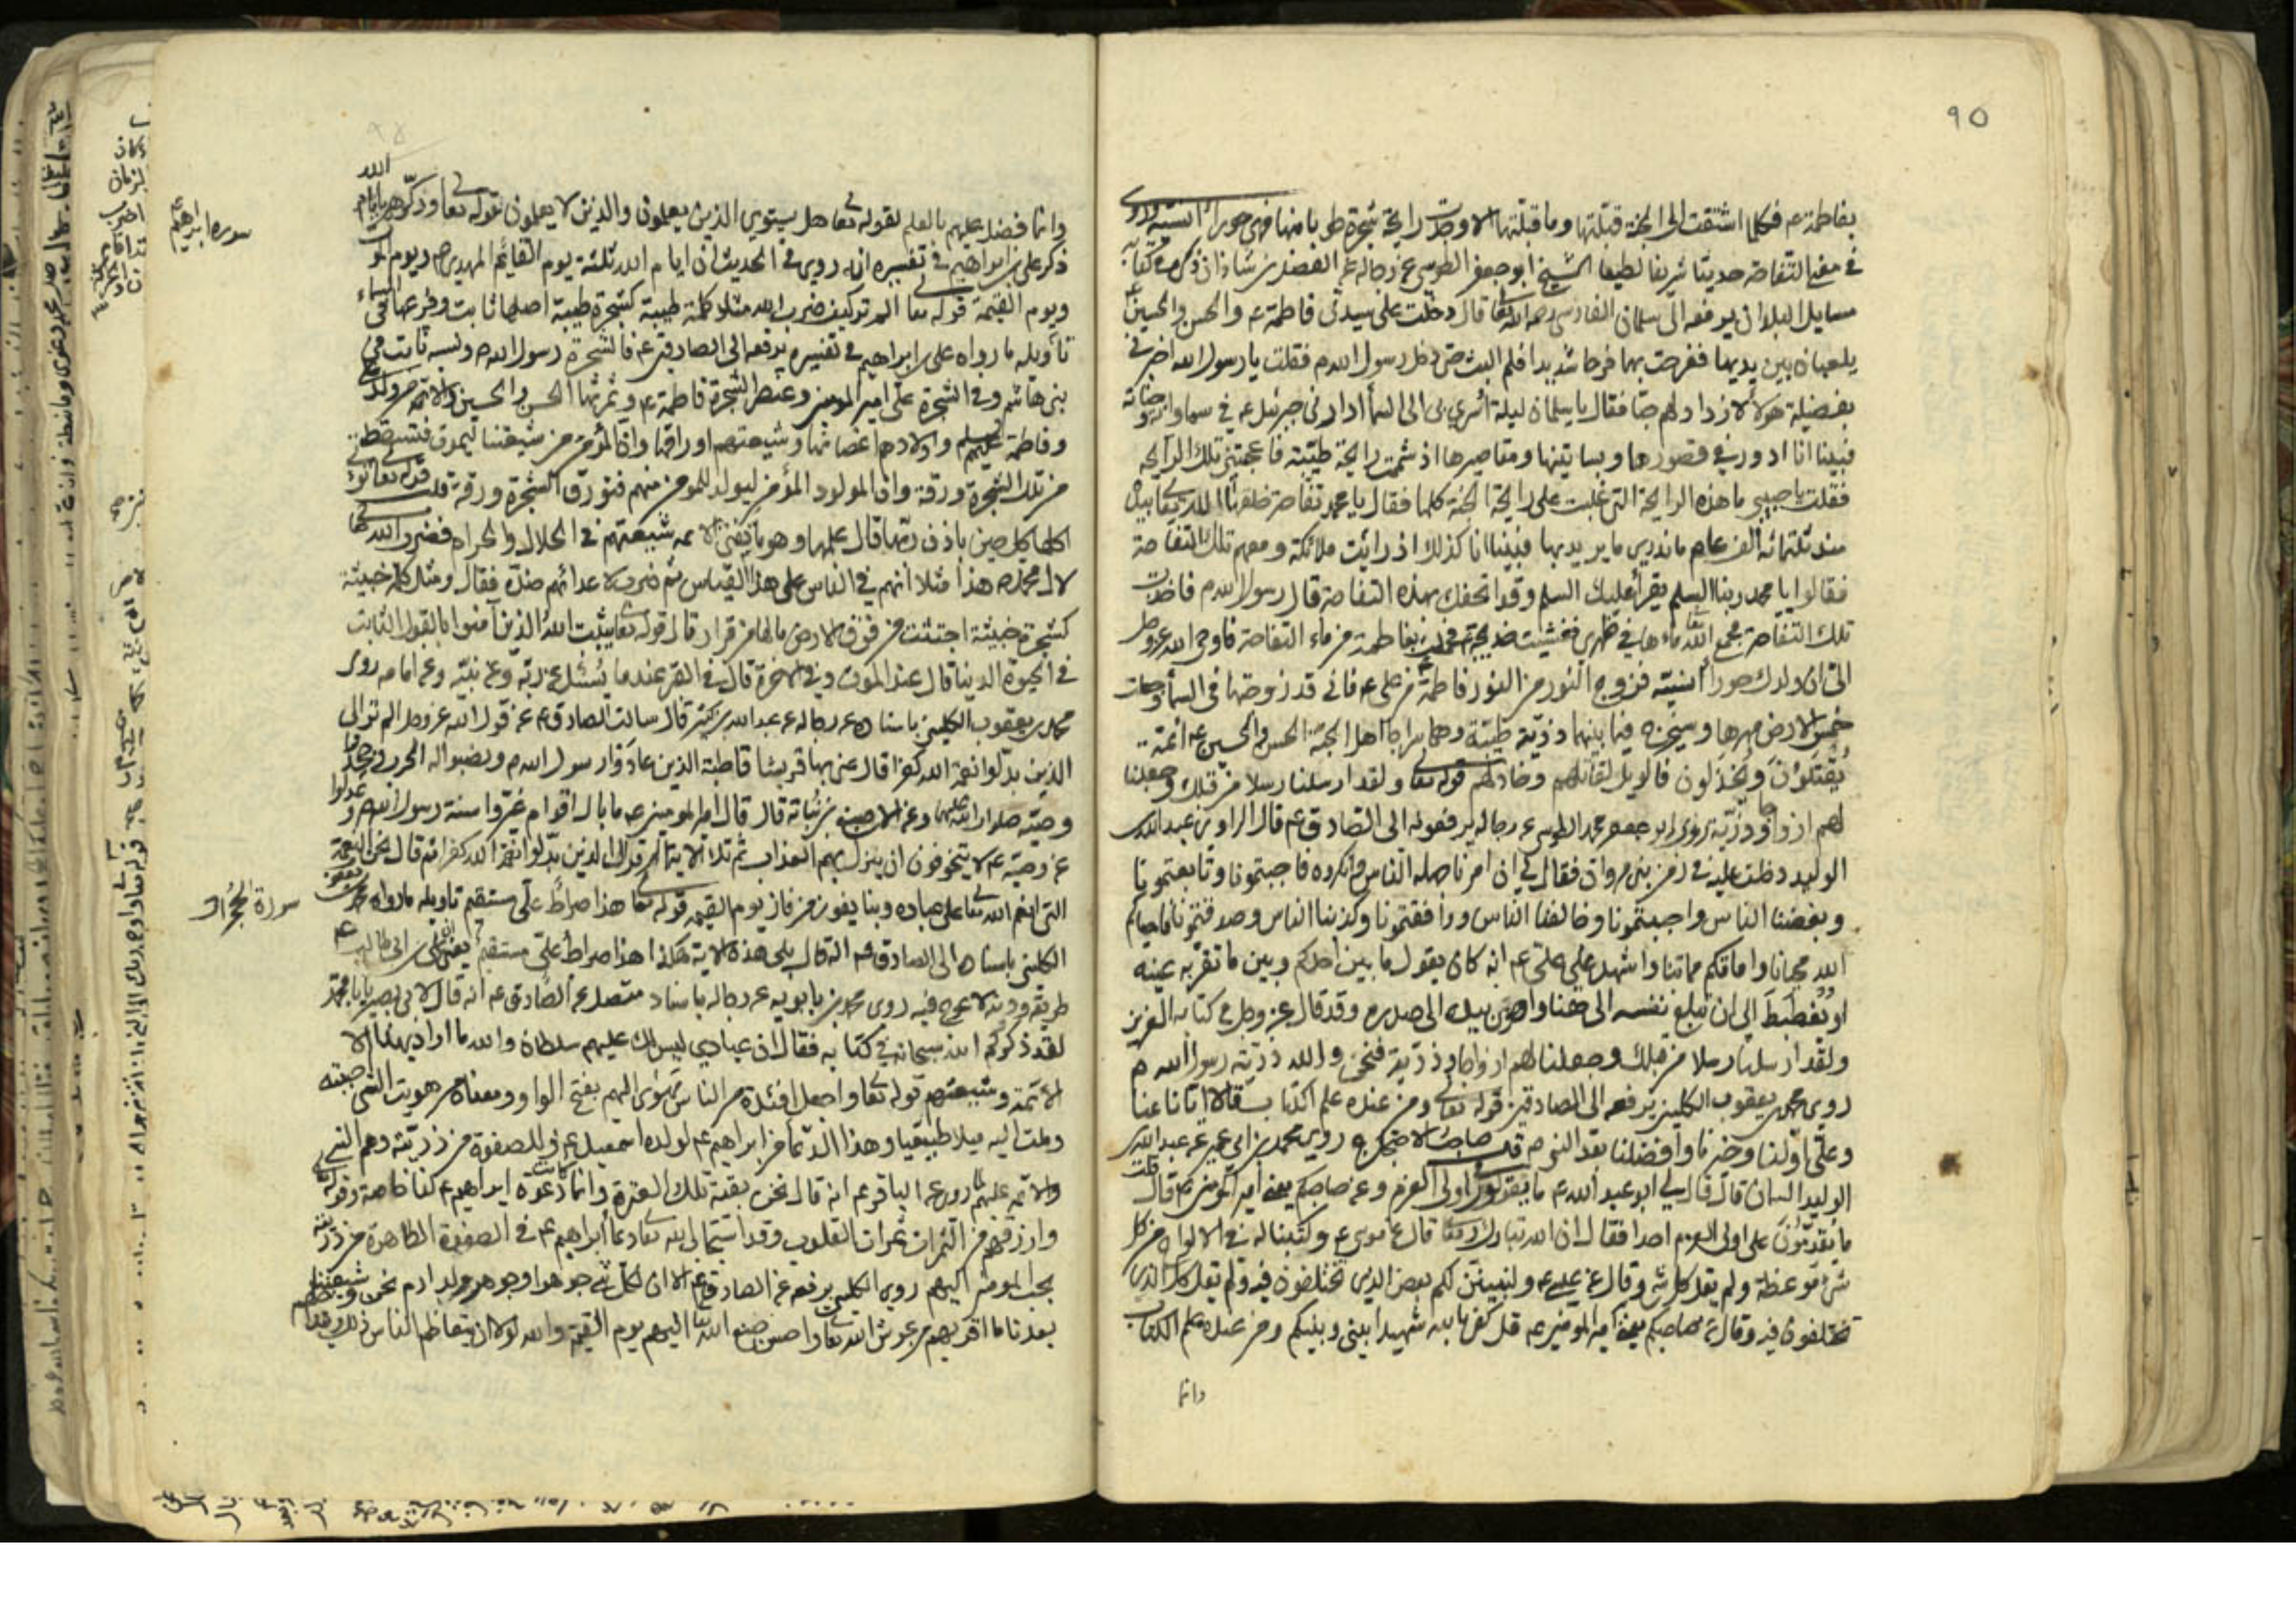 ٩٥
بفاطمة ع فكلما اشتقت الى الجنة قبلتها وما قبلتها الا وجدت رايحة شجرة طوبا منها فهي حوراء انسية وروى
في معنى التفاحة حديثا شريفا لطيفا الشيخ ابو جعفر الطوسي عن رجاله عن الفضل بن شاذان ذكره في كتابه
مسايل البلدان يرفعه الى سلمان الفارسي رحمه الله قال دخلت على سيدتي فاطمة ع والحسن والحسين
يلعبان بين يديها ففرحت بهما فرحا شديدا فلم البث حتى دخل رسول الله ص فقلت يا رسول الله اخبرني
بفضيلة هولاء لازداد لهم حبا فقال يا سلمان ليلة اسري بي الى السماء ادارني جبرئيل ع في سماواته وجنانه
فبينا انا ادور في قصورها وبساتينها ومقاصيرها اذ شممت رايحة طيبة فاعجبتني تلك الرايحه
فقلت يا حبيبي ما هذه الرايحة التي غلبت على رايحة الجنة كلها فقال يا محمد تفاحة خلقها الله تعالى بيده
منذ ثلثمائه الف عام ما ندري ما يريد بها فبينا انا كذلك اذ رايت ملائكة ومعهم تلك التفاحة
فقالوا يا محمد ربنا السلم يقرأ عليك السلم وقد اتحفك بهذه التفاحة قال رسول الله ص فاخذت
تلك التفاحة فجمع الله ماءها في ظهري فغشيت خديجة فحملت بفاطمة من ماء التفاحة فاوحى الله عز وجل
الى ان ولد لك حوراء انسية فزوج النور من النور فاطمة من علي ع فاني قد زوجتها في السماء وجعلت
خمس الارض مهرها وسيخرج فيما بينهما ذرية طيبة وهما سراجا اهل الجنة الحسن والحسين ع ائمة
يُقتلون ويُخذلون فالويل لقاتلهم وخاذلهم قوله تعالى ولقد ارسلنا رسلا من قبلك وجعلنا
لهم ازواجا وذرية روى ابو جعفر محمد الطوسي عن رجاله يرفعونه الى الصادق ع قال الراوي عبد الله بن
الوليد دخلت عليه في زمن بني مروان فقال لي ان امرنا جهله الناس فاجبتمونا وتابعتمونا
وبغضنا الناس واحببتمونا وخالفنا الناس ووافقتمونا وكذبنا الناس وصدقتمونا فاحياكم
الله محيانا واماتكم مماتنا واشهد على علي ع انه كان يقول ما بين احدكم وبين ما تقر به عينه
او يغتبط الى ان تبلغ نفسه الى هنا واهوى بيده الى صدره وقد قال عز وجل في كتابه العزيز
ولقد ارسلنا رسلا من قبلك وجعلنا لهم ازواجا وذرية فنحن والله ذرية رسول الله ص
روى محمد بن يعقوب الكليني يرفعه الى الصادقين قوله تعالى ومن عنده علم الكتاب قالا ايانا عنا
وعلي اولنا وخيرنا وافضلنا بعد النبي ص روى محمد بن ابي عمير عن عبد الله بن
الوليد السمان قال قال لي ابو عبد الله ع ما يقولون اولي العزم وعن صاحبكم يعني امير المؤمنين ع قال قلت
ما يُقدّمون على اولي العزم احدا فقال ان الله تبارك وتعالى قال عن موسى ع وكتبنا له في الالواح من كل
شيء موعظة ولم يقل كل شيء وقال عن عيسى ع ولنبينن لكم بعض الذي تختلفون فيه ولم يقل كل الذي
تختلفون فيه وقال عن صاحبكم يعني امير المؤمنين ع قل كفى بالله شهيدا بيني وبينكم ومن عنده علم الكتاب
وانما
وانما فضل عليهم بالعلم لقوله تعالى هل يستوي الذين يعلمون والذين لا يعلمون قوله تعالى وذكرهم بايام الله
سورة ابراهيم ع
ذكر علي بن ابراهيم في تفسيره انه روي في الحديث ان ايام الله ثلثة يوم القايم المهدي ع ويوم الموت
ويوم القيمة قوله تعالى الم تر كيف ضرب الله مثلا كلمة طيبة كشجرة طيبة اصلها ثابت وفرعها في السماء
تأويله ما رواه علي بن ابراهيم في تفسيره يرفعه الى الصادق ع قال الشجرة رسول الله ص ونسبه ثابت في
بني هاشم وفرع الشجرة علي امير المؤمنين وعنصر الشجرة فاطمة ع وثمرتها الحسن والحسين والائمة من ولد علي
وفاطمة عليهم السلم واولادهم اغصانها وشيعتهم اوراقها وان المؤمن من شيعتنا ليموت فتسقط
من تلك الشجرة ورقة وان المولود المؤمن ليولد للمؤمن منهم فتورق الشجرة ورقة قلت قوله تعالى تؤتي
اكلها كل حين باذن ربها قال علمها وهو ما يفتي الائمه شيعتهم في الحلال والحرام فضرب الله تعالى
لال محمد ص هذا مثلا انهم في الناس على هذا القياس ثم ضرب لاعدائهم ضده فقال ومثل كلمة خبيثة
كشجرة خبيثة اجتثت من فوق الارض ما لها من قرار قال قوله تعالى يثبت الله الذين آمنوا بالقول الثابت
في الحيوة الدنيا قال عند الموت وفي الاخرة قال في القبر عندما يُسئل عن ربه وعن نبيه وعن امامه روى
محمد بن يعقوب الكليني باسناده عن رجاله عن عبد الله بن كثير قال سالت الصادق ع عن قول الله عز وجل الم تر الى
الذين بدلوا نعمة الله كفرا قال عنى بها قريشا قاطبة الذين عادَوا رسول الله ص ونصبوا له الحرب وجحدوا
وصيه صلوات الله عليهما وعن الاصبغ بن نباتة قال قال امير المومنين ع ما بال اقوام غيّروا سنة رسول الله ص وعدلوا
عن وصيه ع لا يتخوفون ان ينزل بهم العذاب ثم تلا الاية الم تر الى الذين بدلوا نعمة الله كفرا ثم قال نحن النعمة
التي انعم الله تعالى على عباده وبنا يفوز من فاز يوم القيمه قوله تعالى هذا صراط عليّ مستقيم تاويله ما رواه محمد بن يعقوب
سورة الحجر
الكليني باسناده الى الصادق ع انه قال تلى هذه الاية هكذا هذا صراط عليّ مستقيم يعني علي بن ابي طالب ع
طريقه ودينه لا عوج فيه روى محمد بن بابويه عن رجاله باسناد متصل عن الصادق ع انه قال لابي بصير يا با محمد
لقد ذكركم الله سبحانه في كتابه فقال ان عبادي ليس لك عليهم سلطان والله ما اراد بهذا الا
الائمة وشيعتهم قوله تعالى واجعل افئدة من الناس تهوَى اليهم بفتح الواو ومعناه من هويت الشيء احببته
وملت اليه ميلا طبيعيا وهذا الدعا من ابراهيم ع لولده اسمعيل ع وللصفوة من ذريته وهم النبي
والائمة عليهم السلم روي عن الباقر ع انه قال نحن بقية تلك العترة وانما كانت دعوة ابراهيم ع لنا خاصة وقوله تعالى
وارزقهم من الثمرات ثمرات القلوب وقد استجاب الله تعالى دعا ابراهيم ع في الصفوة الطاهرة من ذريته
بحب المومنين اليهم روى الكليني يرفعه عن الصادق ع الا ان لكل شيء جوهرا وجوهر ولد ادم نحن وشيعتنا
بعدنا ما اقربهم من عرش الله تعالى واحسن صنع الله تعالى اليهم يوم القيمة والله لولا ان يتعاظم الناس ذلك